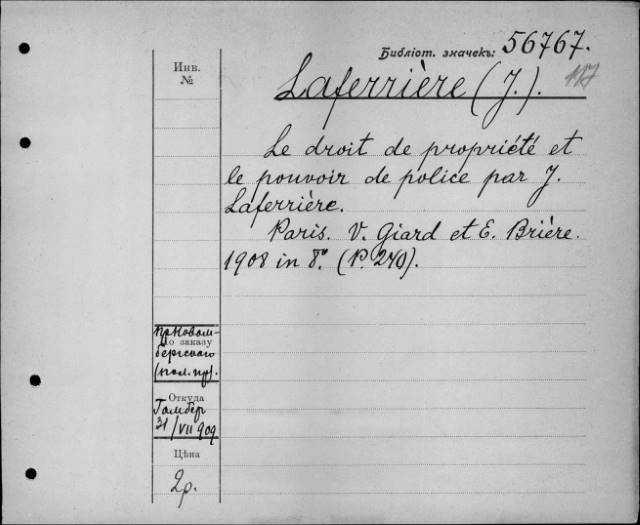 Библіот. значекъ: 56767.
Инв.
№
Laferrière (J.). 117
Le droit de propriété et
le pouvoir de police par J.
Laferrière.
Paris. V. Giard et E. Brière.
1908 in 8°. (P. 270).
По заказу
(пол. пр).
Откуда
Гамбер
31/VII 909
Цѣна
2р.